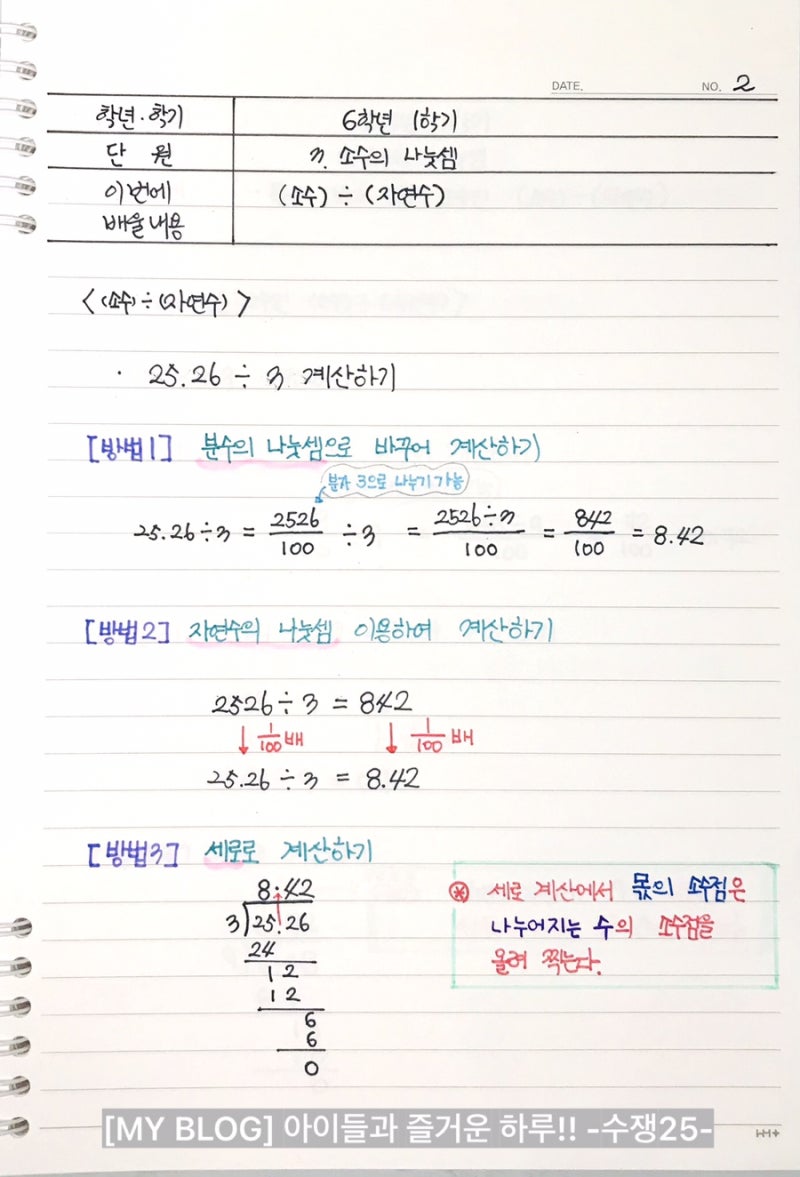 DATE. NO. 2
학년·학기 6학년 1학기
단 원 3. 소수의 나눗셈
이번에 배울내용 (소수) ÷ (자연수)
<(소수)÷(자연수)>
· 25.26 ÷ 3 계산하기
[방법1] 분수의 나눗셈으로 바꾸어 계산하기
분자 3으로 나누기 가능
25.26÷3 = 2526/100 ÷3 = 2526÷3/100 = 842/100 = 8.42
[방법2] 자연수의 나눗셈 이용하여 계산하기
2526÷3 = 842
↓ 1/100배 ↓ 1/100배
25.26÷3 = 8.42
[방법3] 세로로 계산하기
8.42
3)25.26
24
12
12
6
6
0
※ 세로 계산에서 몫의 소수점은
나누어지는 수의 소수점을
올려 찍는다.
[MY BLOG] 아이들과 즐거운 하루!! -수쟁25-